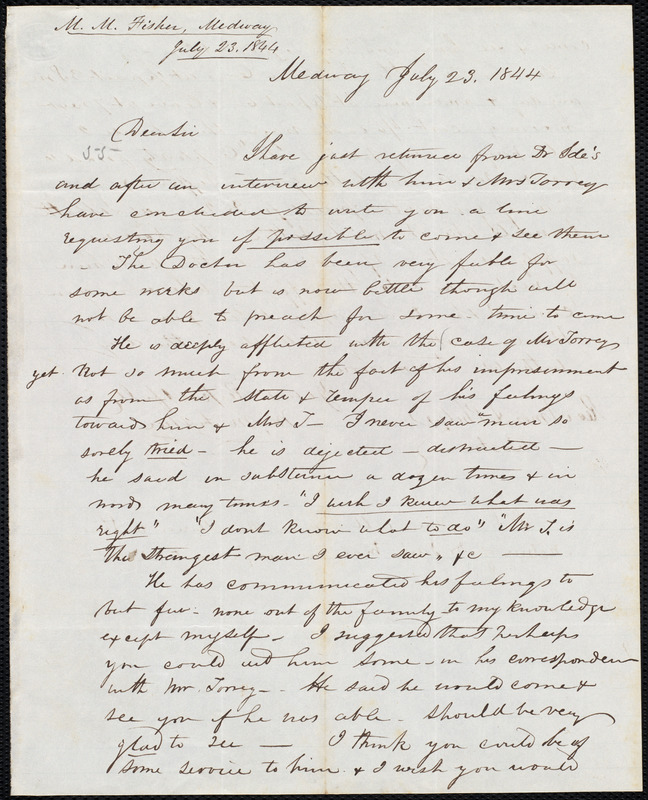 M. M. Fisher, Medway
July 23. 1844
Medway July 23. 1844
Dear Sir I have just returned from Dr Ide's
and after an interview with him & Mrs Torrey
have concluded to write you a line
requesting you if possible to come & see them
- The Doctor has been very feeble for
some weeks but is now better though will
not be able to preach for some time to come
He is deeply afflicted with the case of Mr Torrey
yet. Not so much from the fact of his imprisonment
as from the state & temper of his feelings
toward him & Mrs T- I never saw man so
sorely tried - he is dejected - distracted -
he said in substance a dozen times & in
words many times - "I wish I knew what was
right" "I dont know what to do" "Mr T. is
the strangest man I ever saw" &c
He has communicated his feelings to
but few - none out of the family to my knowledge
except myself - I suggested that perhaps
you could aid him some - in his correspondence
with Mr Torrey - He said he would come &
see you if he was able. Should be very
glad to see - I think you could be of
some service to him & I wish you would